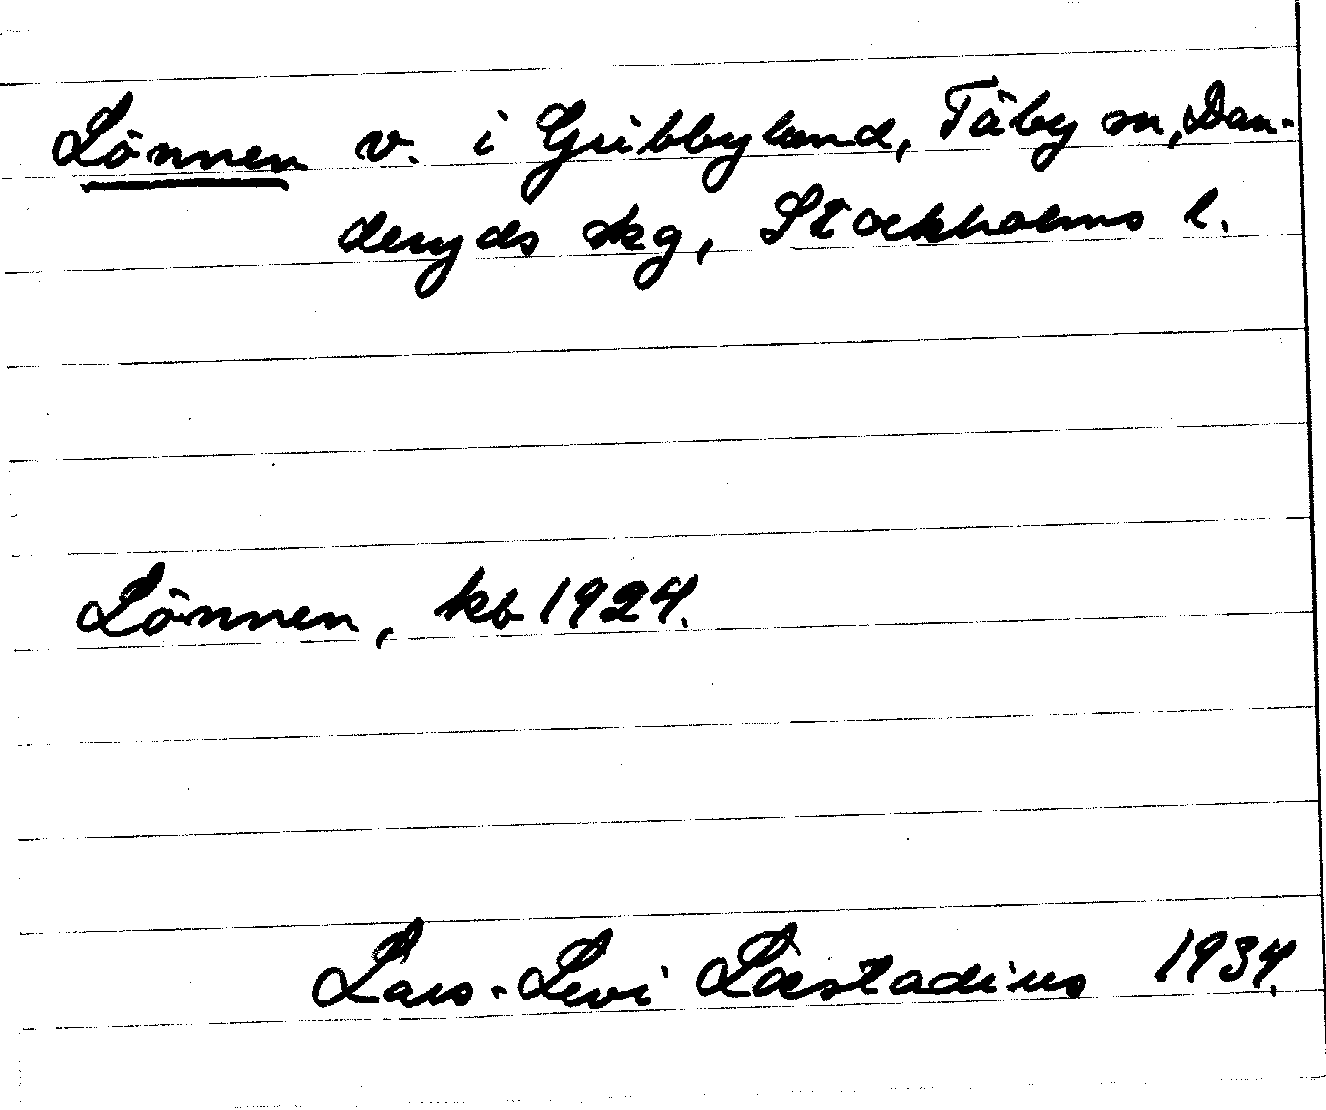 Lönnen v. i Gribbyland, Täby sn, Dan-
deryds skg, Stockholms l.
Lönnen, kb 1924.
Lars-Levi Læstadius 1934.